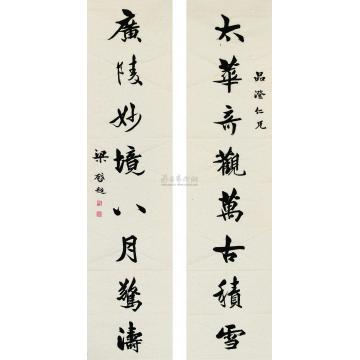 太華奇觀萬古積雪
品澄仁兄
廣陵妙境八月驚濤
梁啟超